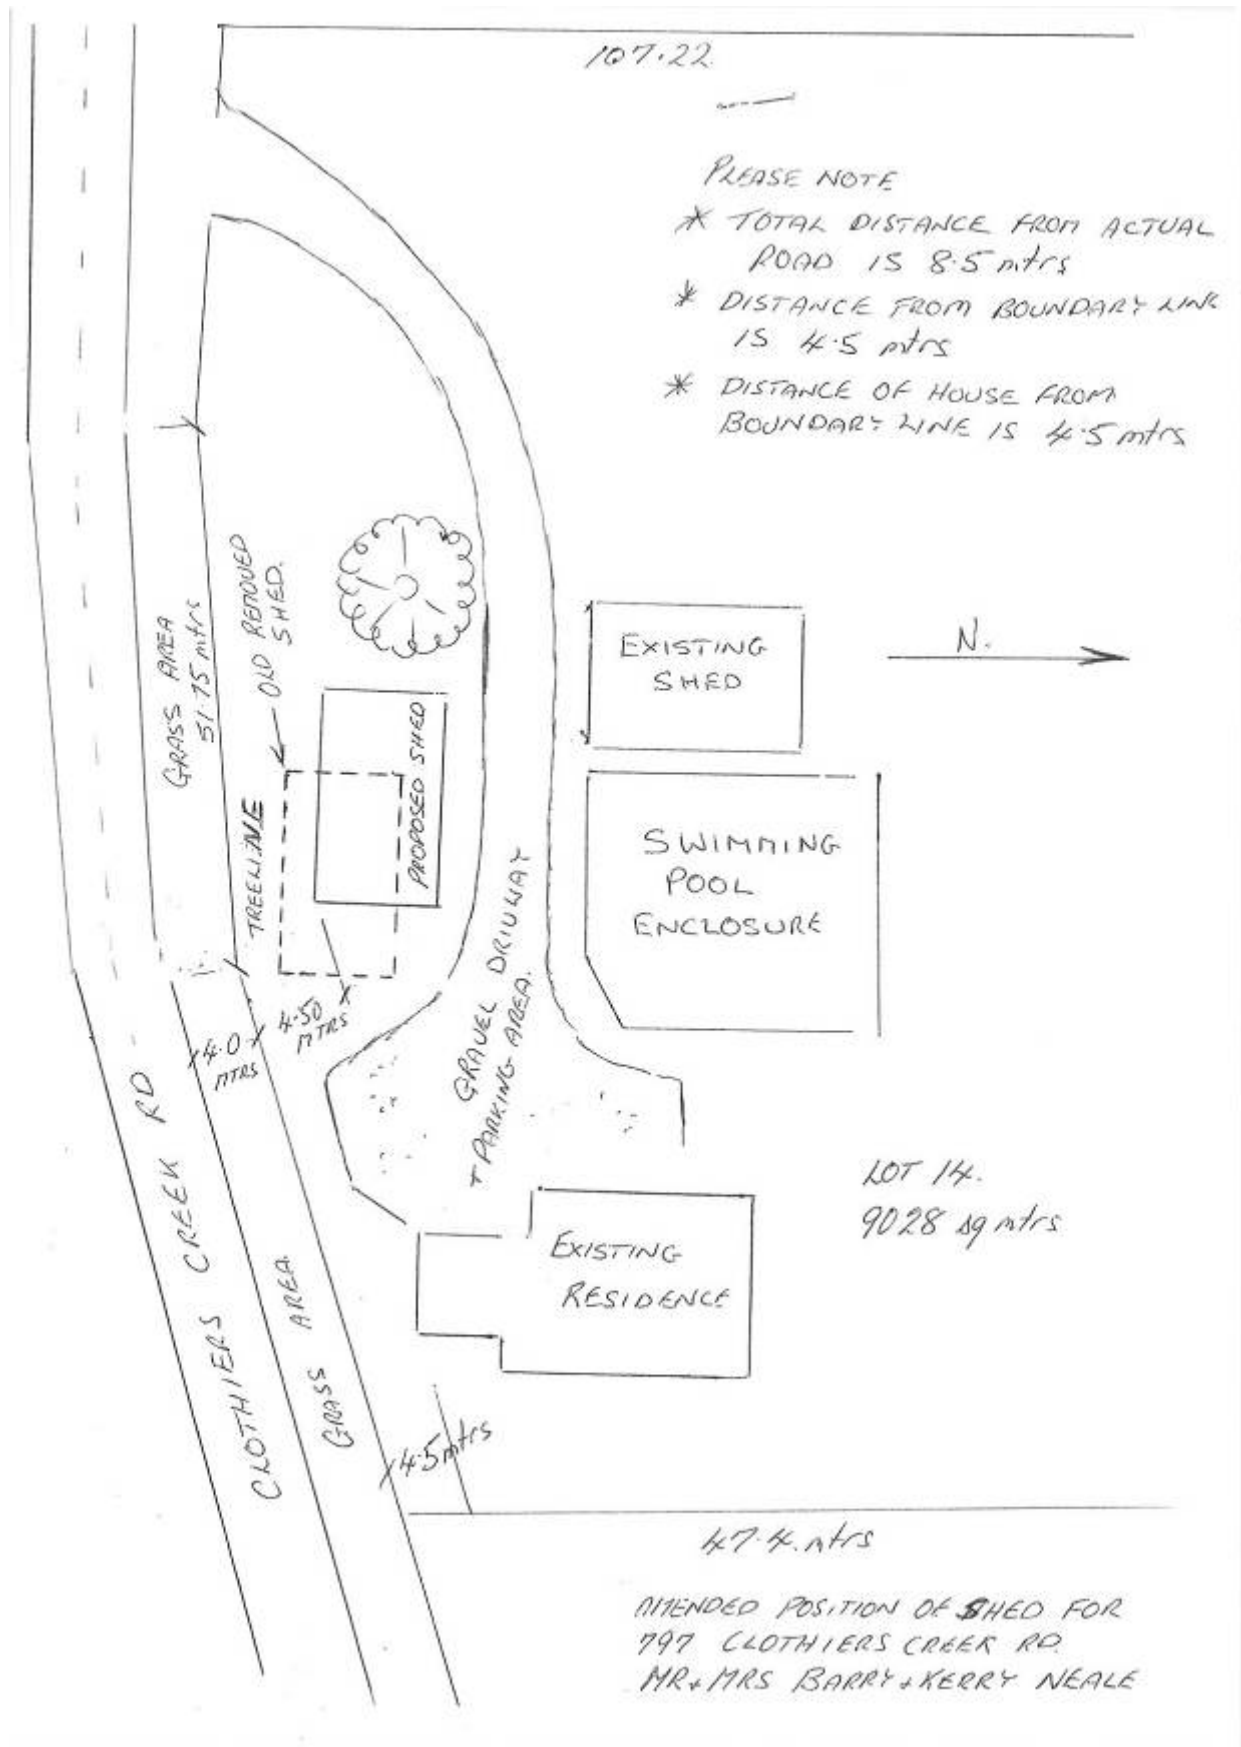 107.22
PLEASE NOTE
* TOTAL DISTANCE FROM ACTUAL
ROAD IS 8.5 mtrs
* DISTANCE FROM BOUNDARY LINE
IS 4.5 mtrs
* DISTANCE OF HOUSE FROM
BOUNDARY LINE IS 4.5 mtrs
OLD REMOVED
SHED.
GRASS AREA
51.75 mtrs
TREELINE
PROPOSED SHED
EXISTING
SHED
N.
SWIMMING
POOL
ENCLOSURE
4.50
MTRS
4.0
MTRS
GRAVEL DRIVWAY
+ PARKING AREA.
CLOTHIERS CREEK RD
GRASS AREA.
LOT 14.
9028 sq mtrs
EXISTING
RESIDENCE
4.5 mtrs
47.4. mtrs
AMENDED POSITION OF SHED FOR
797 CLOTHIERS CREEK RD.
MR + MRS BARRY + KERRY NEALE